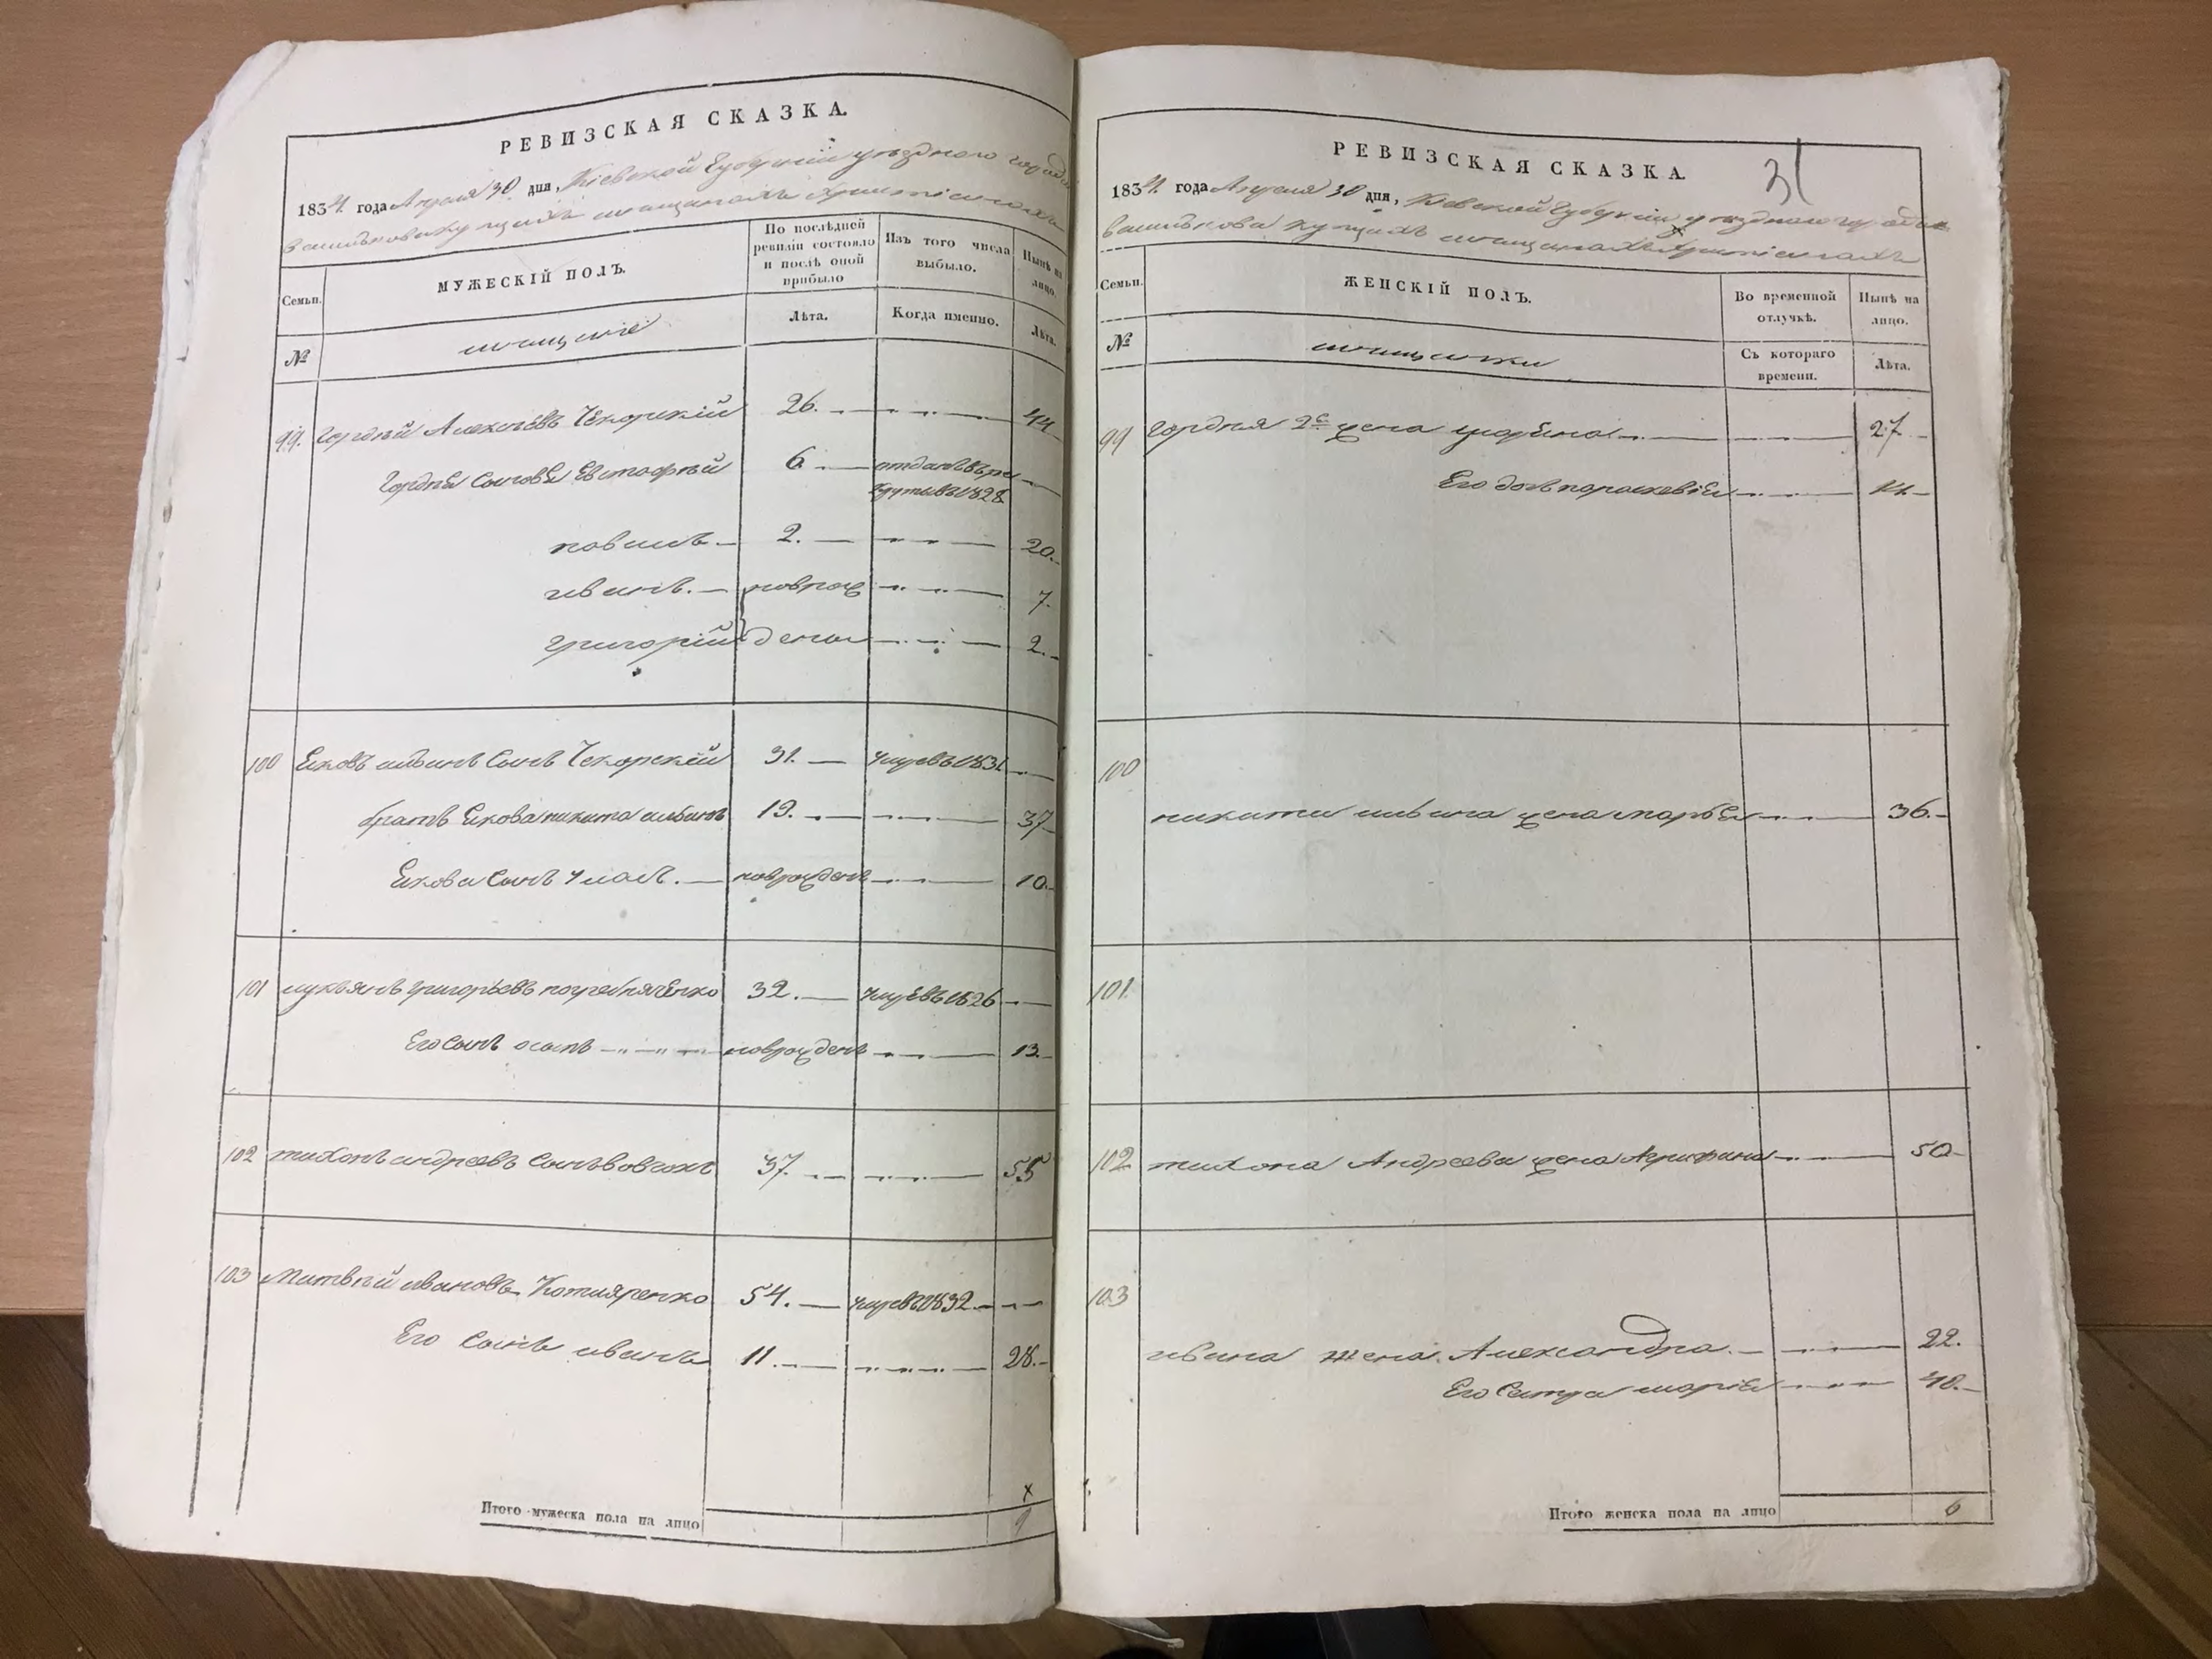 РЕВИЗСКАЯ СКАЗКА.
1834 года Апреля 30 дня, Кіевской Губерніи уѣзднаго города
Василькова купцахъ мещанахъ христіянахъ
Семьи.
МУЖЕСКІЙ ПОЛЪ.
По послѣдней ревизіи состояло и послѣ оной прибыло
Изъ того числа выбыло.
Нынѣ на лицо.
№
мещане
Лѣта.
Когда именно.
Лѣта.
99. Гордѣй Алексѣевъ Чекорскій 26. 44
Гордѣя Сыновья Евстафѣй 6. отданъ въ ре
круты въ 1828
павелъ 2. 20.
иванъ. новрож 7.
григорій дены 2.
100 Яковъ ильинъ Сынъ Чекорскій 31. умре въ 1831
братъ Якова никита ильинъ 19. 37
Якова Сынъ новрожденъ 10.
101 лукьянъ григорьевъ погребняченко 32. умре въ 1826
Его Сынъ осипъ новрожденъ 13.
102 тихонъ андреевъ Сынъ вовчокъ 37. 55
103 Матвѣй ивановъ Котляренко 54. умре въ 1832
Его Сынъ иванъ 11. 28.
Итого мужеска пола на лицо 9
31
РЕВИЗСКАЯ СКАЗКА.
1834. года Апреля 30 дня, Кіевской Губерніи уѣзднаго города
Василькова купцахъ мещанахъ христіянахъ
Семьи.
ЖЕНСКІЙ ПОЛЪ.
Во временной отлучкѣ.
Нынѣ на лицо.
№
мещанки
Съ котораго времени.
Лѣта.
99 Гордѣя 2я жена марина 27
Его дочь параскевія 14.
100
никиты ильина жена марья 36.
101.
102 тихона Андреева жена Агрифина 50
103
ивана жена Александра. 22.
Его Сестра марія 40.
Итого женска пола на лицо 6